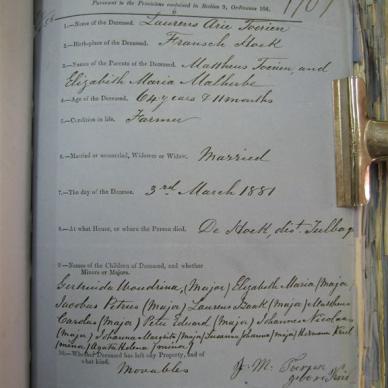 Pursuant to the Provisions contained in Section 9, Ordinance 104.
1.—Name of the Deceased. Laurens Arie Toerien
2.—Birthplace of the Deceased. Fransch Hoek
3.—Names of the Parents of the Deceased. Mattheus Toerien, and
Elizabeth Maria Malherbe
4.—Age of the Deceased. 64 years & 11 months
5.—Condition in life. Farmer
6.—Married or unmarried, Widower or Widow. Married
7.—The day of the Decease. 3rd March 1881
8.—At what House, or where the Person died. De Hoek, dist. Tulbag
9.—Names of the Children of Deceased, and whether
Minors or Majors.
Gertruida Woudrina, (Major) Elizabeth Maria (Major
Jacobus Petrus (Major) Laurens Izaak (Major) Mattheus
Carolus (Major) Peter Eduard (Major) Johannes Nicolaas
(Major) Johanna Margrita (Major) Susanna Johanna (Major) Hermanus
(minor) Agatha Helena (minor)
10.—Whether Deceased has left any Property, and of
what kind.
Movables
M. Toerien